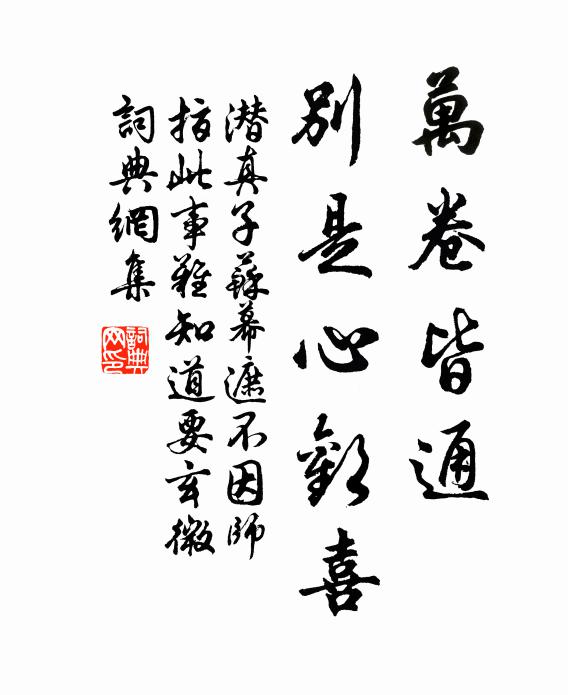 萬卷皆通
別是心歡喜
潜真子蘇幕遮不因師
指此事難知道要玄微
詞典網集
詞典网印